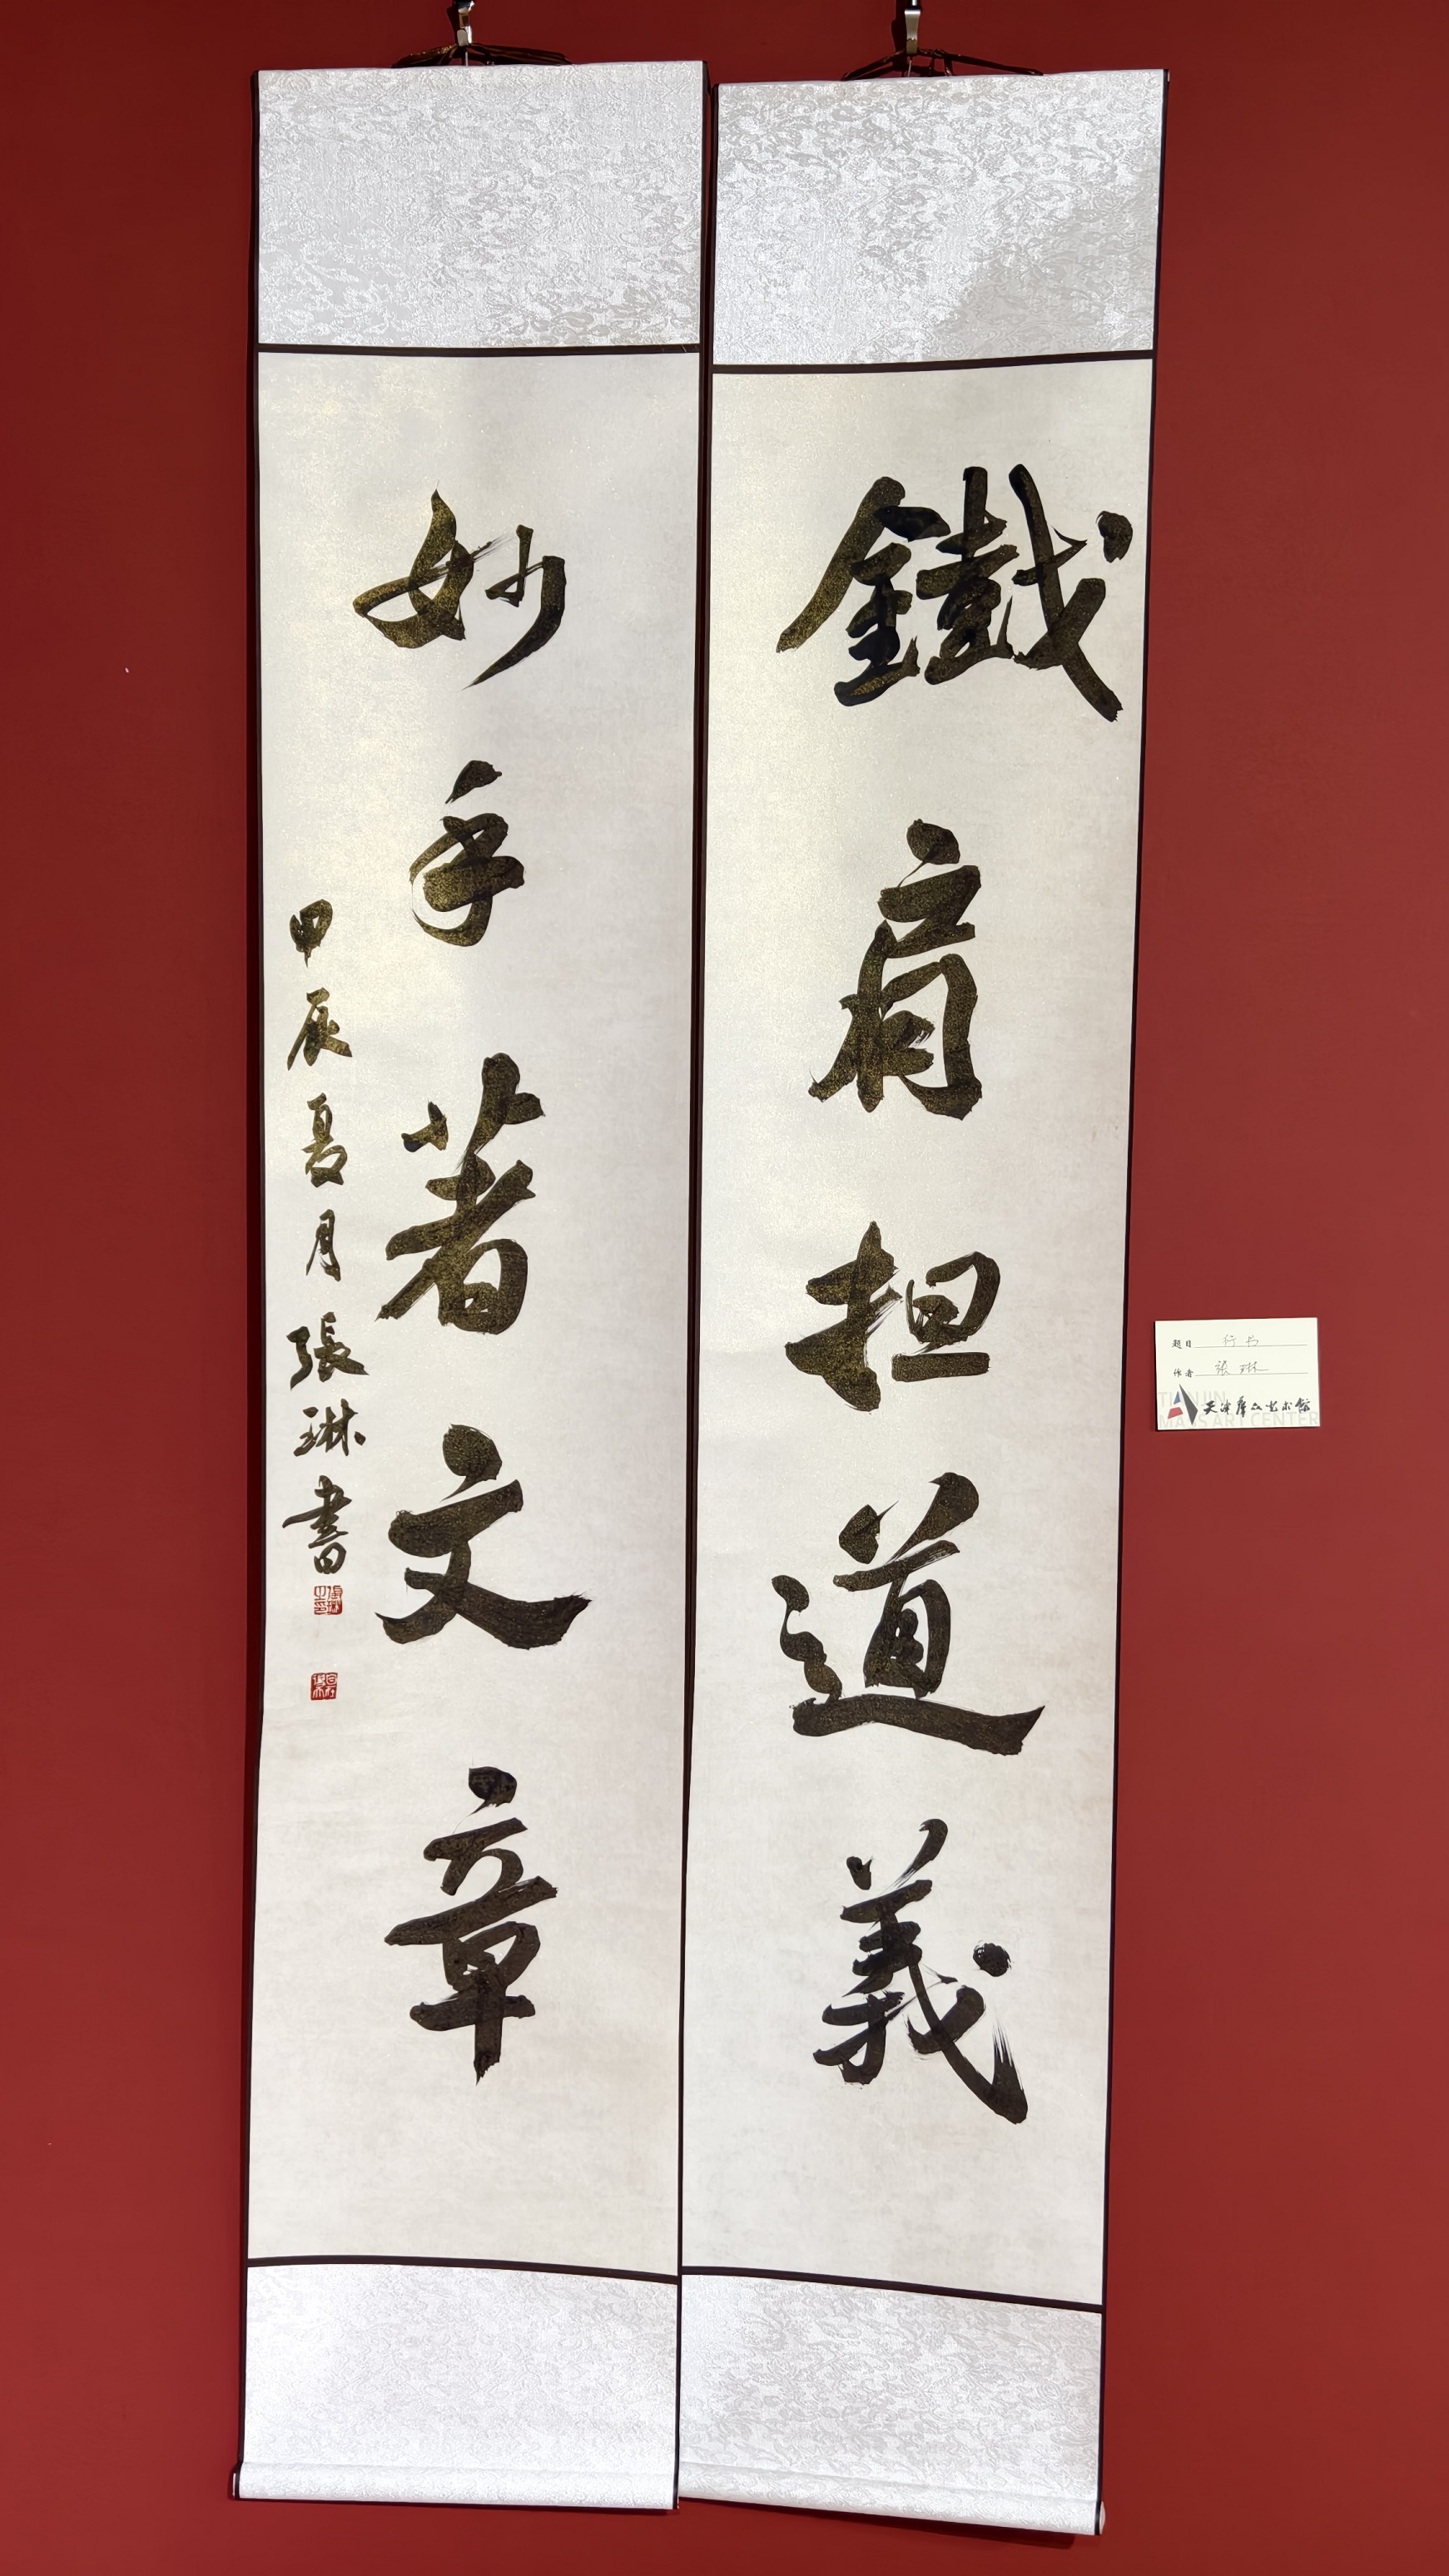 鐵肩担道義
妙手著文章
甲辰夏月張琳書
题目 行书
作者 張琳
天津群众艺术馆
TIANJIN
MASS ART CENTER